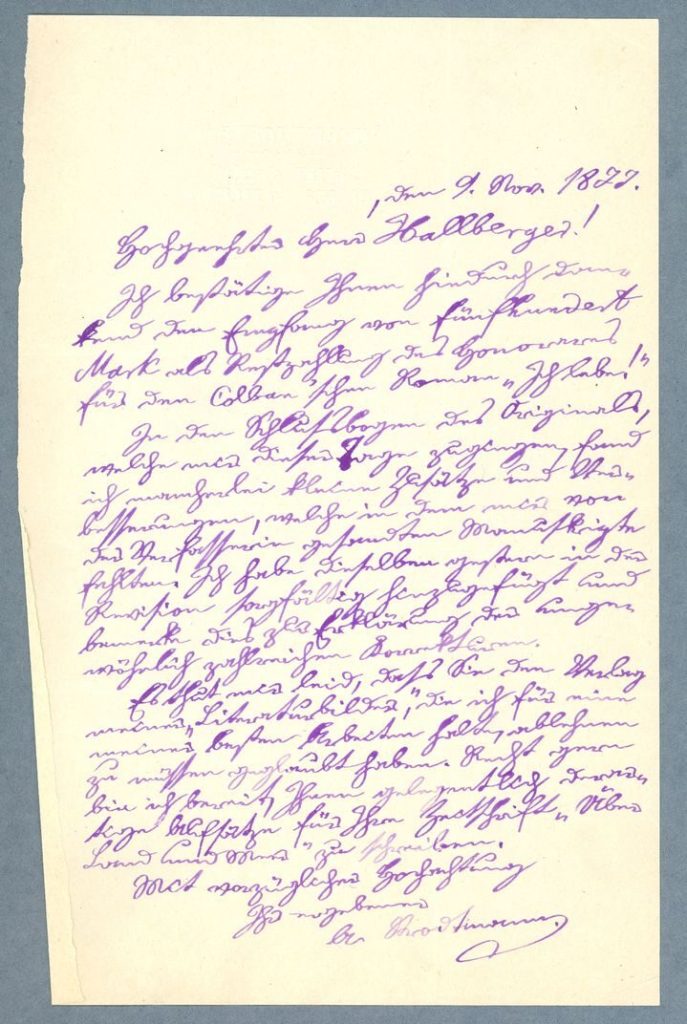 , den 9. Nov. 1877.
Hochgeehrter Herr Hallberger!
Ich bestätige Ihnen hiedurch dan-
kend den Empfang von Fünfhundert
Mark als Restzahlung des Honorares
für den Colban'schen Roman „Ich lebe!"
In den Schlussbogen des Originals,
welche mir dieser Tage zugingen, fand
ich mancherlei kleine Zusätze und Ver-
besserungen, welche in dem mir von
der Verfasserin gesandten Manuskripte
fehlten. Ich habe dieselben gestern in der
Revision sorgfältig hinzugefügt und
bemerke dies zur Erklärung der unge-
wöhnlich zahlreichen Korrekturen.
Es thut mir leid, dass Sie den Verlag
meiner „Literaturbilder", die ich für eine
meiner besten Arbeiten halte, ablehnen
zu müssen geglaubt haben. Recht gern
bin ich bereit, Ihnen gelegentlich derar-
tige Aufsätze für Ihre Zeitschrift „Über
Land und Meer" zu schreiben.
Mit vorzüglicher Hochachtung
Ihr ergebener
A. Strodtmann.